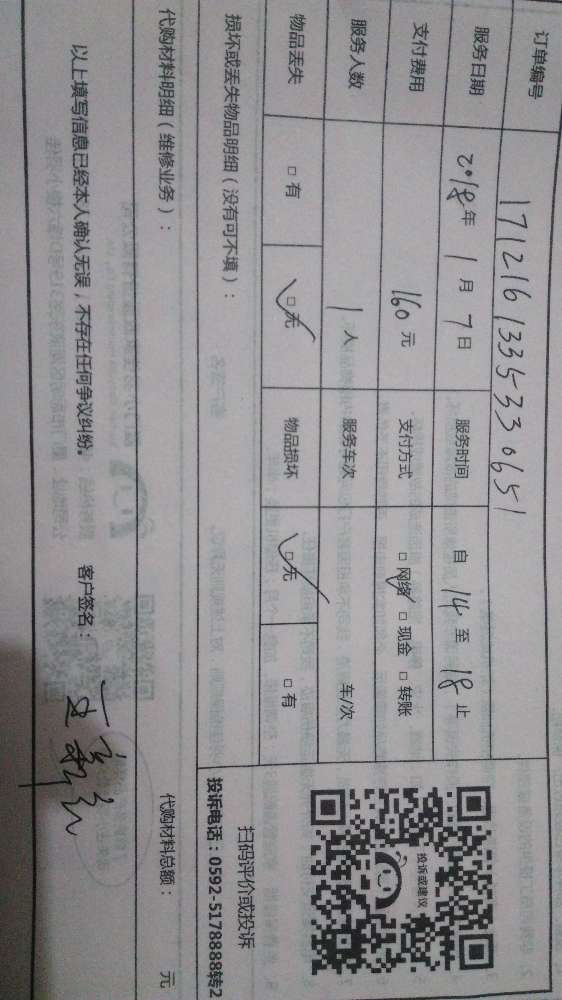 订单编号 1712161335330651
服务日期 2018年1月7日 服务时间 自 14 至 18 止
支付费用 160元 支付方式 □网络 □现金 □转账
服务人数 1人 服务车次 车/次
物品丢失 □有 □无 物品损坏 □无 □有
投诉或建议
扫码评价或投诉
投诉电话:0592-5178888转2
损坏或丢失物品明细(没有可不填):
代购材料明细(维修业务): 代购材料总额: 元
以上填写信息已经本人确认无误,不存在任何争议纠纷。 客户签名: